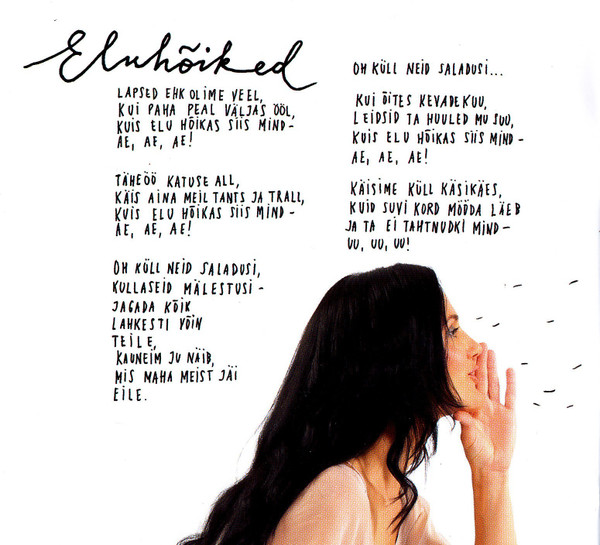 Eluhõiked
LAPSED EHK OLIME VEEL,
KUI PAHA PEAL VÄLJAS ÖÖL,
KUIS ELU HÕIKAS SIIS MIND-
AE, AE, AE!
TÄHEÖÖ KATUSE ALL,
KÄIS AINA MEIL TANTS JA TRALL,
KUIS ELU HÕIKAS SIIS MIND-
AE, AE, AE!
OH KÜLL NEID SALADUSI,
KULLASEID MÄLESTUSI-
JAGADA KÕIK
LAHKESTI VÕIN
TEILE,
KAUNEIM JU NÄIB,
MIS MAHA MEIST JÄI
EILE.
OH KÜLL NEID SALADUSI...
KUI ÕITES KEVADEKUU,
LEIDSID TA HUULED MU SUU,
KUIS ELU HÕIKAS SIIS MIND-
AE, AE, AE!
KÄISIME KÜLL KÄSIKÄES,
KUID SUVI KORD MÖÖDA LÄEB
JA TA EI TAHTNUDKI MIND-
UU, UU, UU!